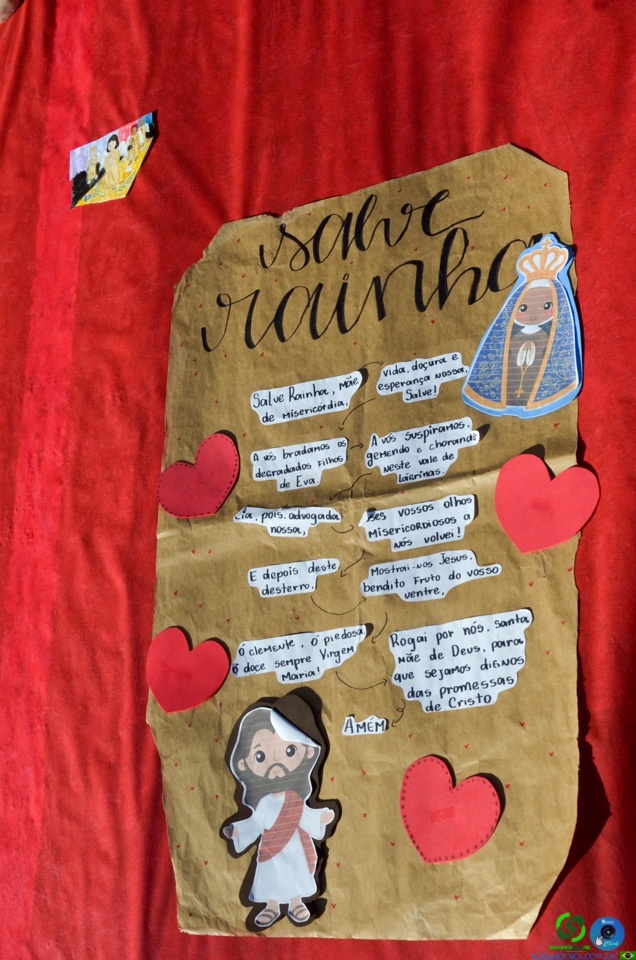 salve
rainha
Salve Rainha, mãe
de misericórdia,
vida, doçura e
esperança nossa,
Salve!
A vós bradamos os
degradados filhos
de Eva.
A vós suspiramos,
gemendo e chorando
neste vale de
lágrimas.
Eia, pois, advogada
nossa,
esses vossos olhos
misericordiosos a
nós volvei!
E depois deste
desterro,
Mostrai-nos Jesus,
bendito fruto do vosso
ventre,
Ó clemente, ó piedosa
ó doce sempre Virgem
Maria!
Rogai por nós, santa
mãe de Deus, para
que sejamos dignos
das promessas
de Cristo
Amém